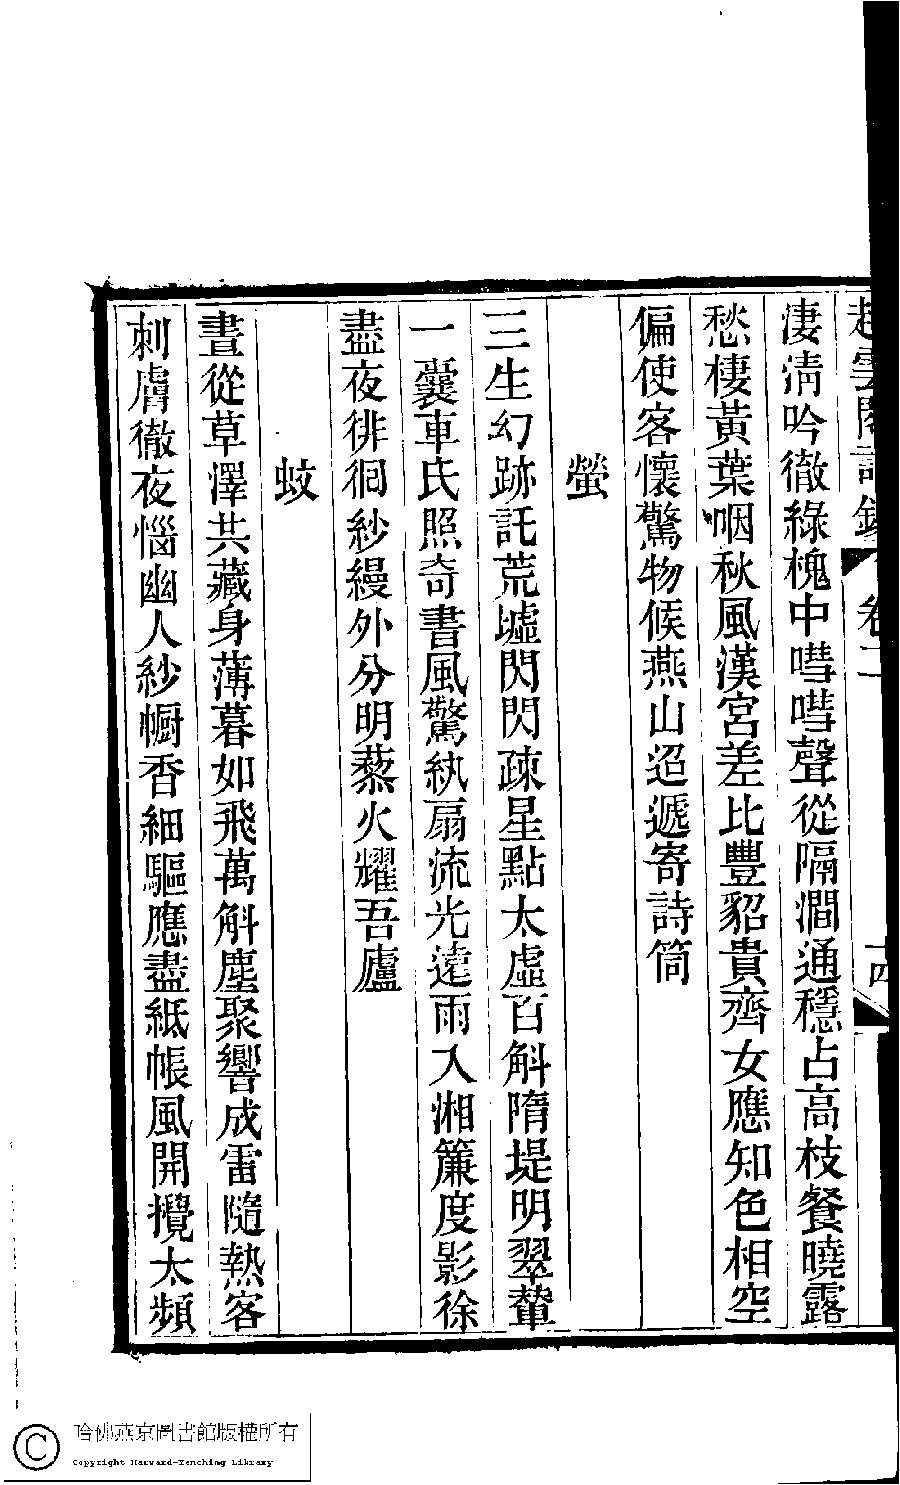 趨雲閣詩鈔 卷二 十四
淒清吟徹綠槐中嘒嘒聲從隔澗通穩占高枝餐曉露
愁棲黃葉咽秋風漢宮差比豐貂貴齊女應知色相空
偏使客懷驚物候燕山迢遞寄詩筒
螢
三生幻跡託荒墟閃閃疎星點太虛百斛隋堤明翠輦
一囊車氏照奇書風驚紈扇流光遠雨入湘簾度影徐
盡夜徘徊紗縵外分明藜火耀吾廬
蚊
晝從草澤共藏身薄暮如飛萬斛塵聚響成雷隨熱客
刺膚徹夜惱幽人紗幮香細驅應盡紙帳風開攪太頻
哈佛燕京圖書館版權所有
Copyright Harvard-Yenching Library